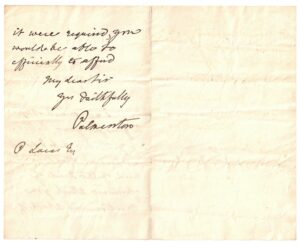 it were required you
would be able to
efficiently to afford
my dear sir
yrs faithfully
Palmerston
P